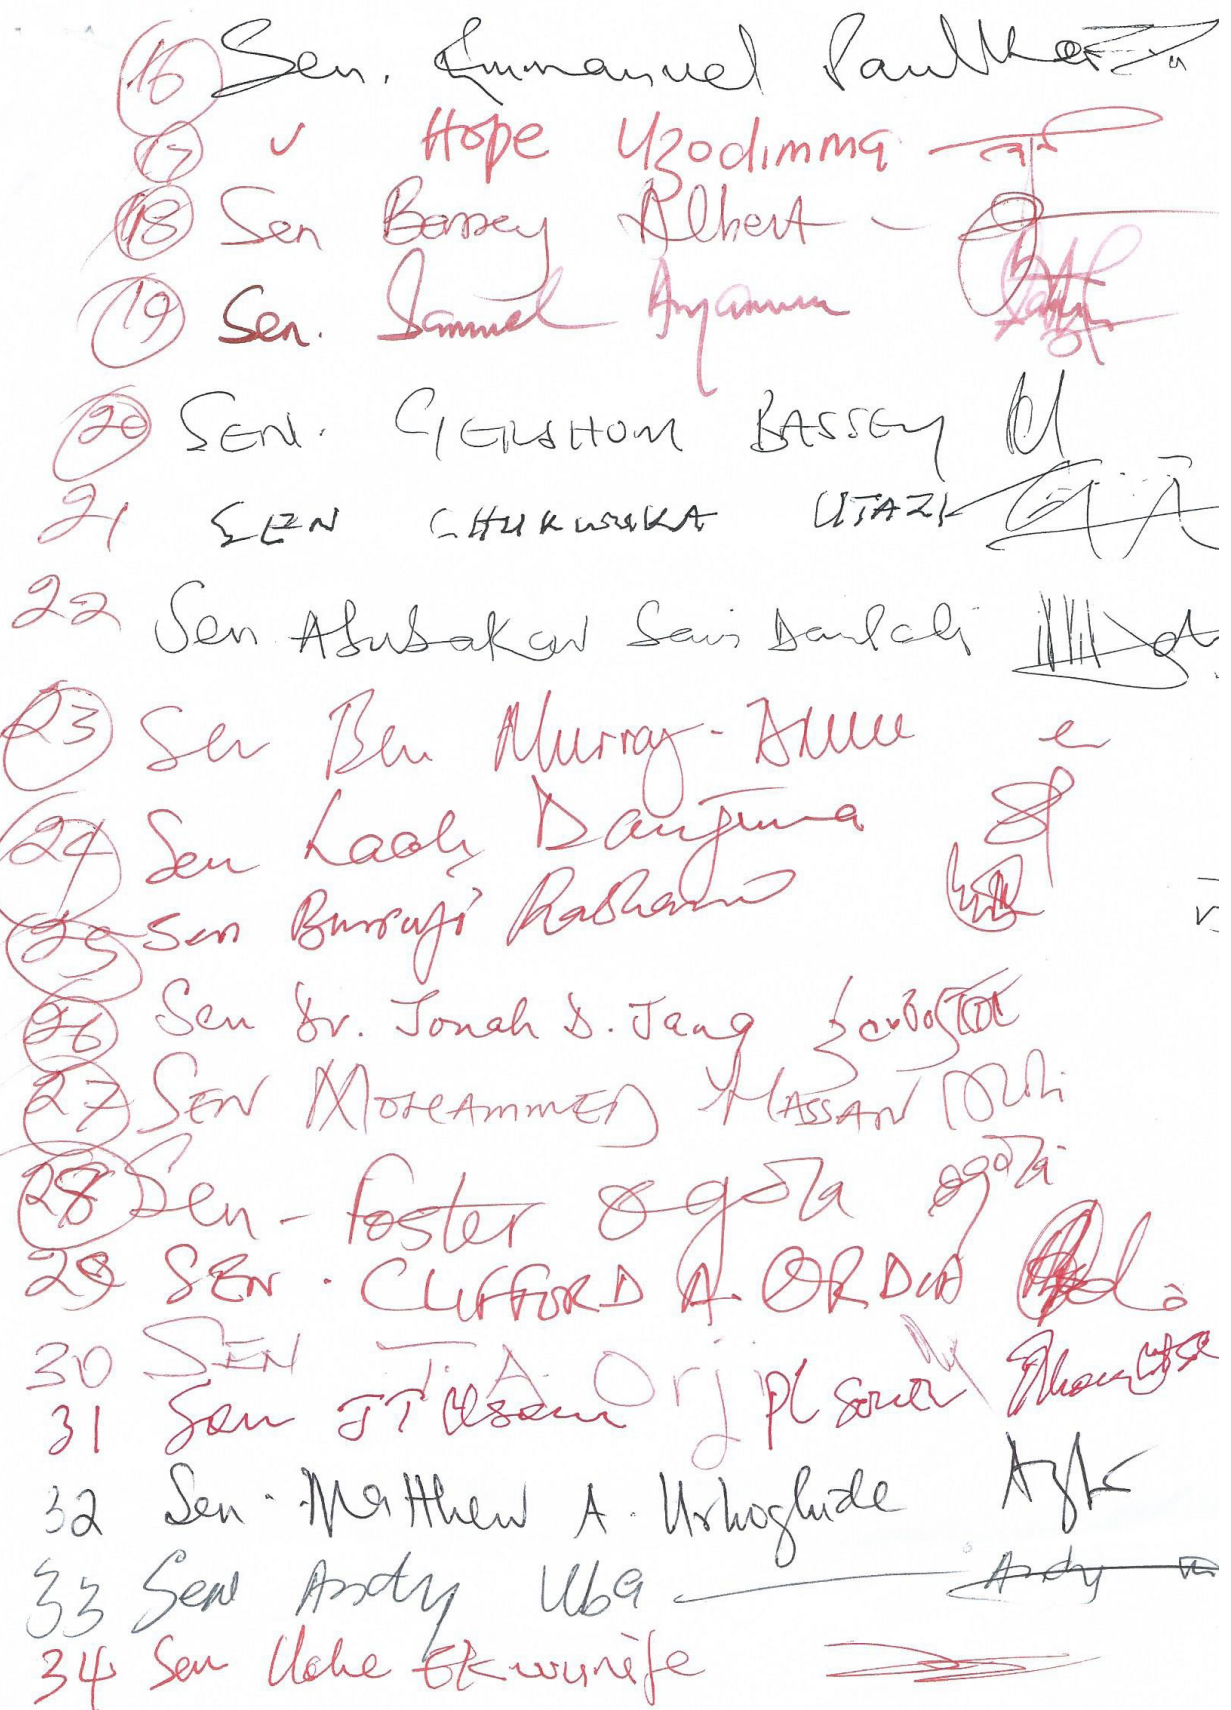 16 Sen. Emmanuel Paulker
17 " Hope Uzodimma
18 Sen Bassey Albert -
19 Sen. Samuel Anyanwu
20 SEN. GERSHOM BASSEY
21 SEN CHUKWUKA UTAZI
22 Sen Abubakar Sani Danladi
23 Sen Ben Murray-Bruce
24 Sen Laah Danjuma
25 Sen Buruji Kashamu
26 Sen Dr. Jonah D. Jang
27 SEN MOHAMMED HASSAN
28 Sen - Foster Ogola ogola
29 SEN. CLIFFORD A. ORDIA
30 SEN T. A. Orji
31 Sen JT Useni PL South
32 Sen. Matthew A. Urhoghide
33 Sen Andy Uba Andy
34 Sen Uche Ekwunife